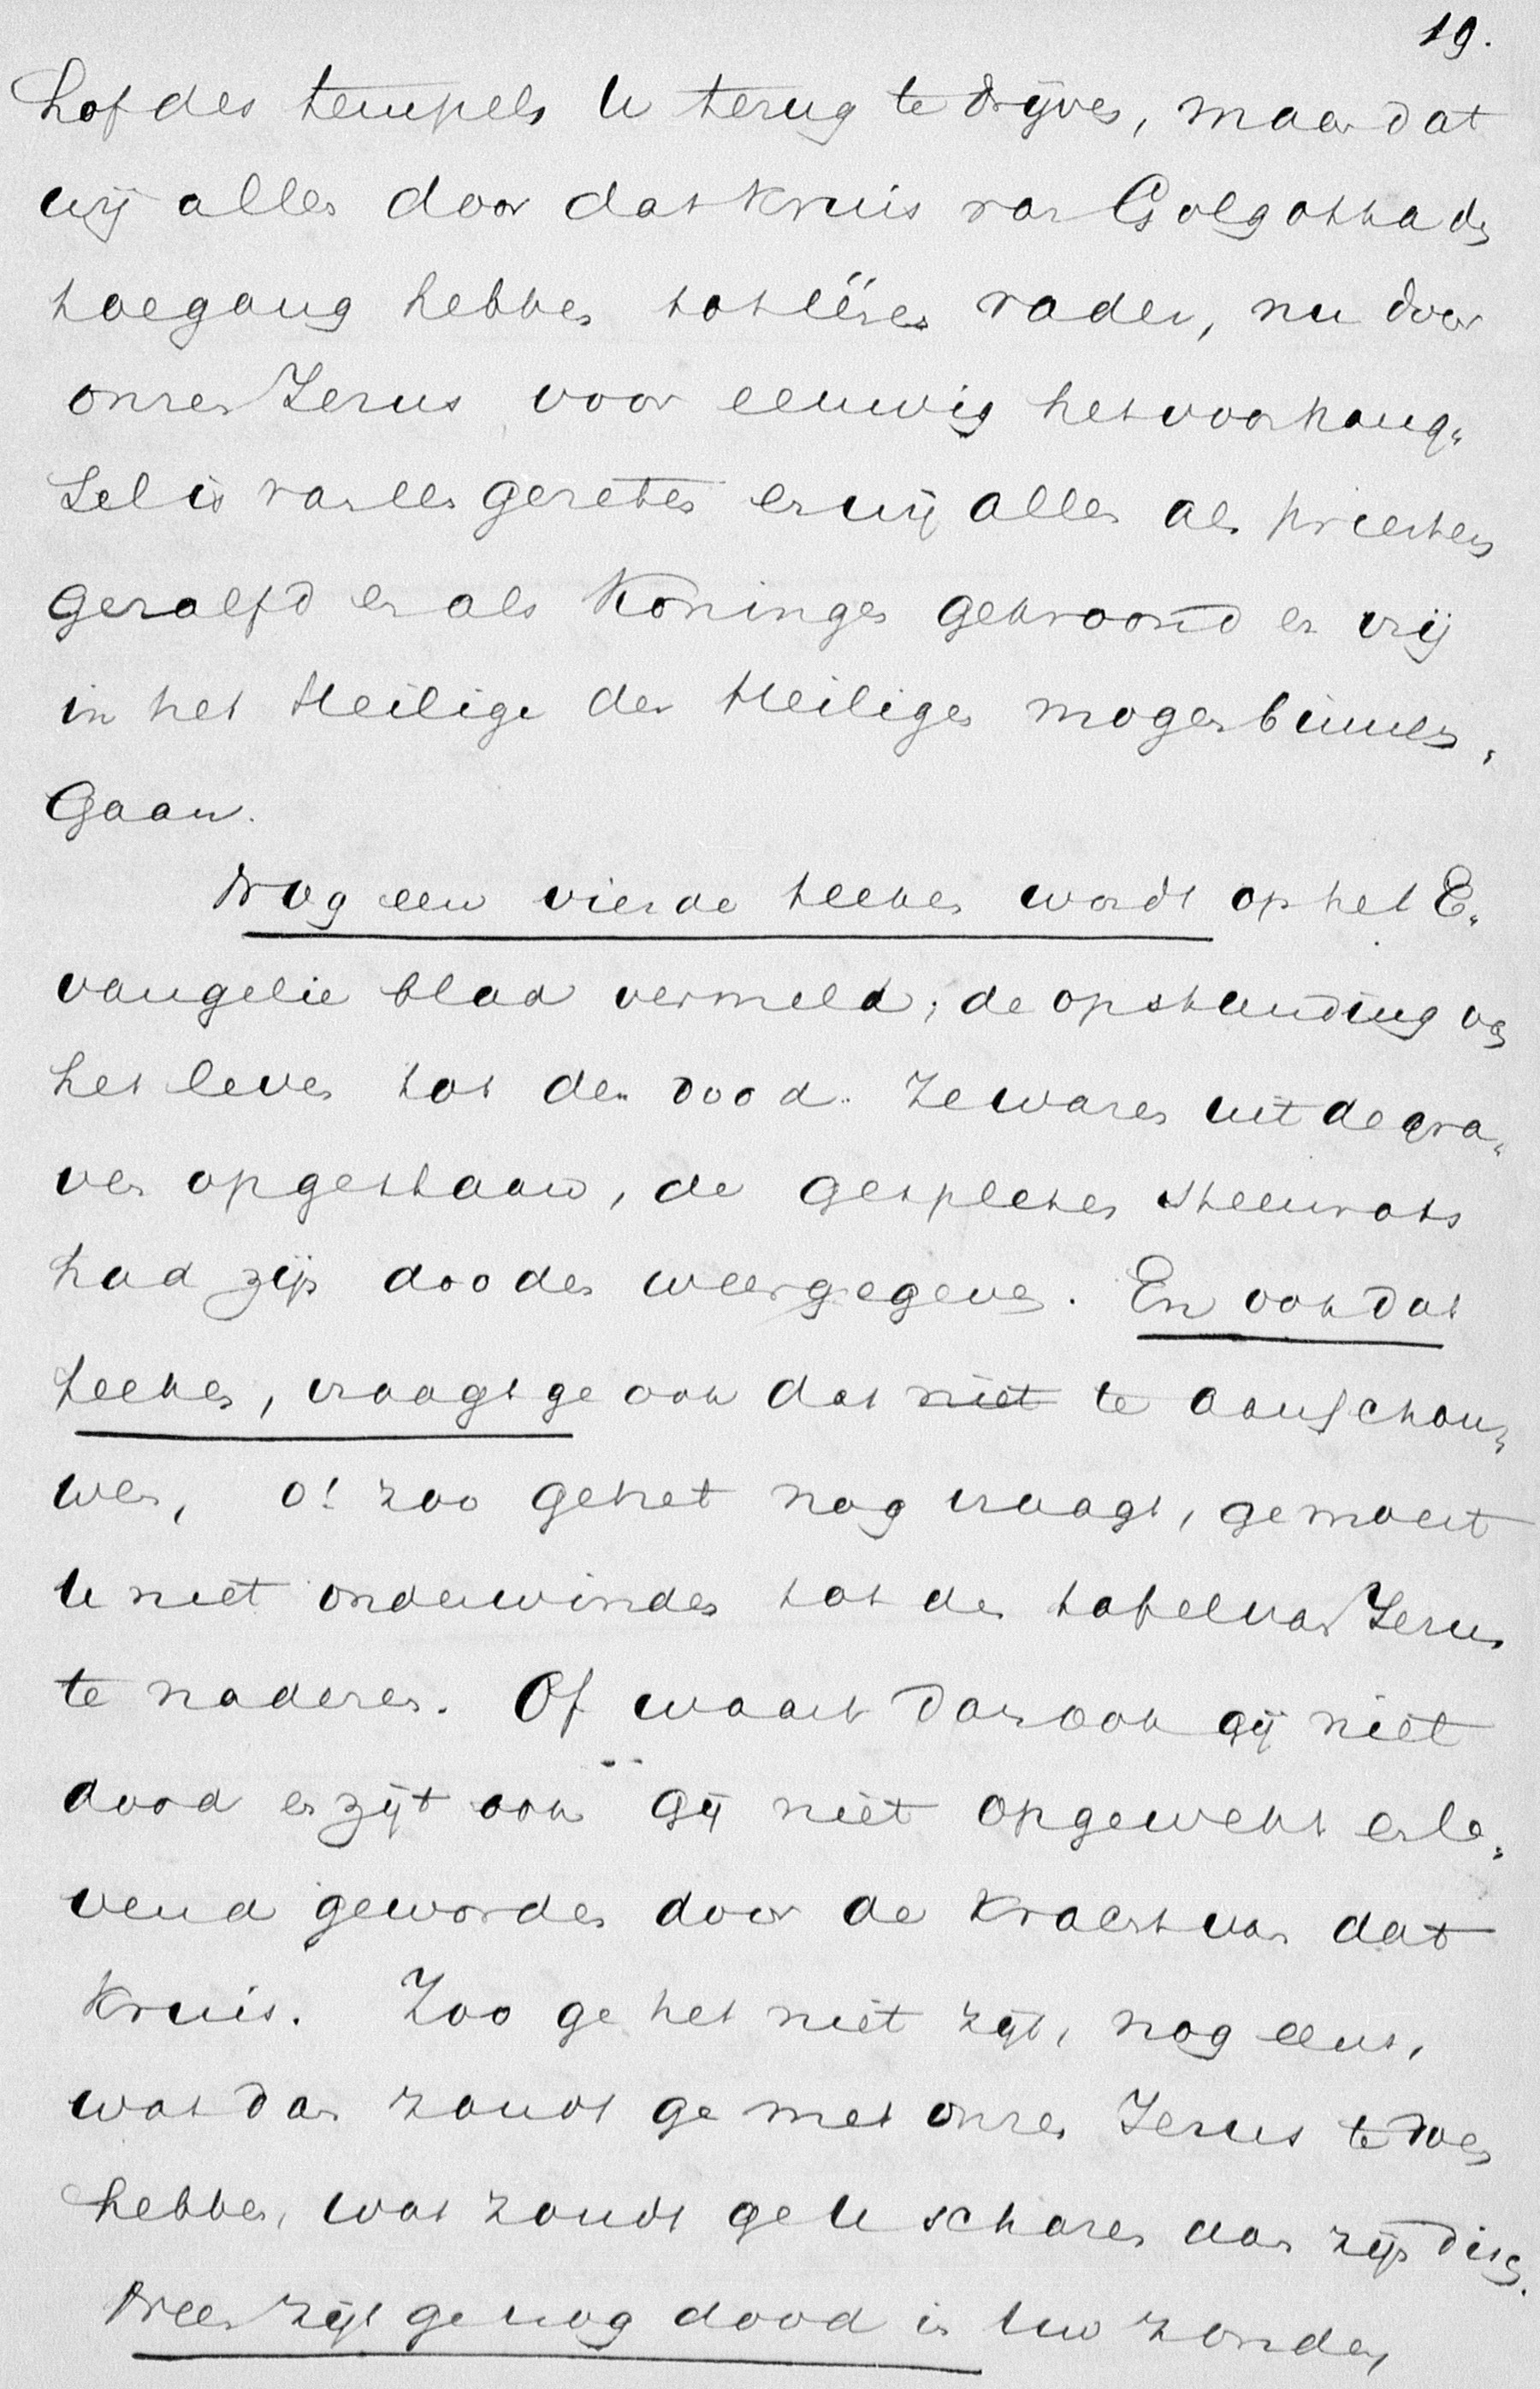 19.
hof des tempels U terug te drijven, maar dat
wij allen door dat kruis van Golgotha den
toegang hebben tot éénen vader, nu door
onzen Jezus voor eeuwig het voorhang„
sel is van een gereten en wij allen als priesters
gezalfd en als Koningen gekroond en vrij
in het Heilige der Heiligen mogen binnen„
gaan.
Nog een vierde teeken wordt op het E„
vangelie blad vermeld; de opstanding van
het leven tot den dood. Ze waren uit de gra„
ven opgestaan, de gespleten steenrots
had zijn dooden weergegeven. En ook dat
teeken, vraagt ge ook dat niet te aanschou„
wen, o! zoo ge het nog vraagt, ge moest
U niet onderwinden tot de tafel van Jezus
te naderen. Of waart dan ook gij niet
dood en zijt ook gij niet opgewekt en le„
vend geworden door de kracht van dat
kruis. Zoo ge het niet zijt, nog eens,
wat dan zoudt ge met onzen Jezus te doen
hebben, wat zoudt ge U scharen aan zijn disch.
Neen zijt ge nog dood in Uw zonden,